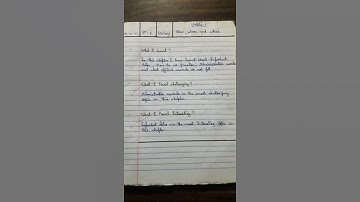 History
How, when and where
What I learnt?
In this chapter I have learnt about Important
dates, How do we periodise, Administrative records
and what official records do not tell.
What I found challenging?
Administrative records is the most challenging
topic in this chapter.
What I found Interesting?
Important dates is the most Interesting topic in
this chapter.